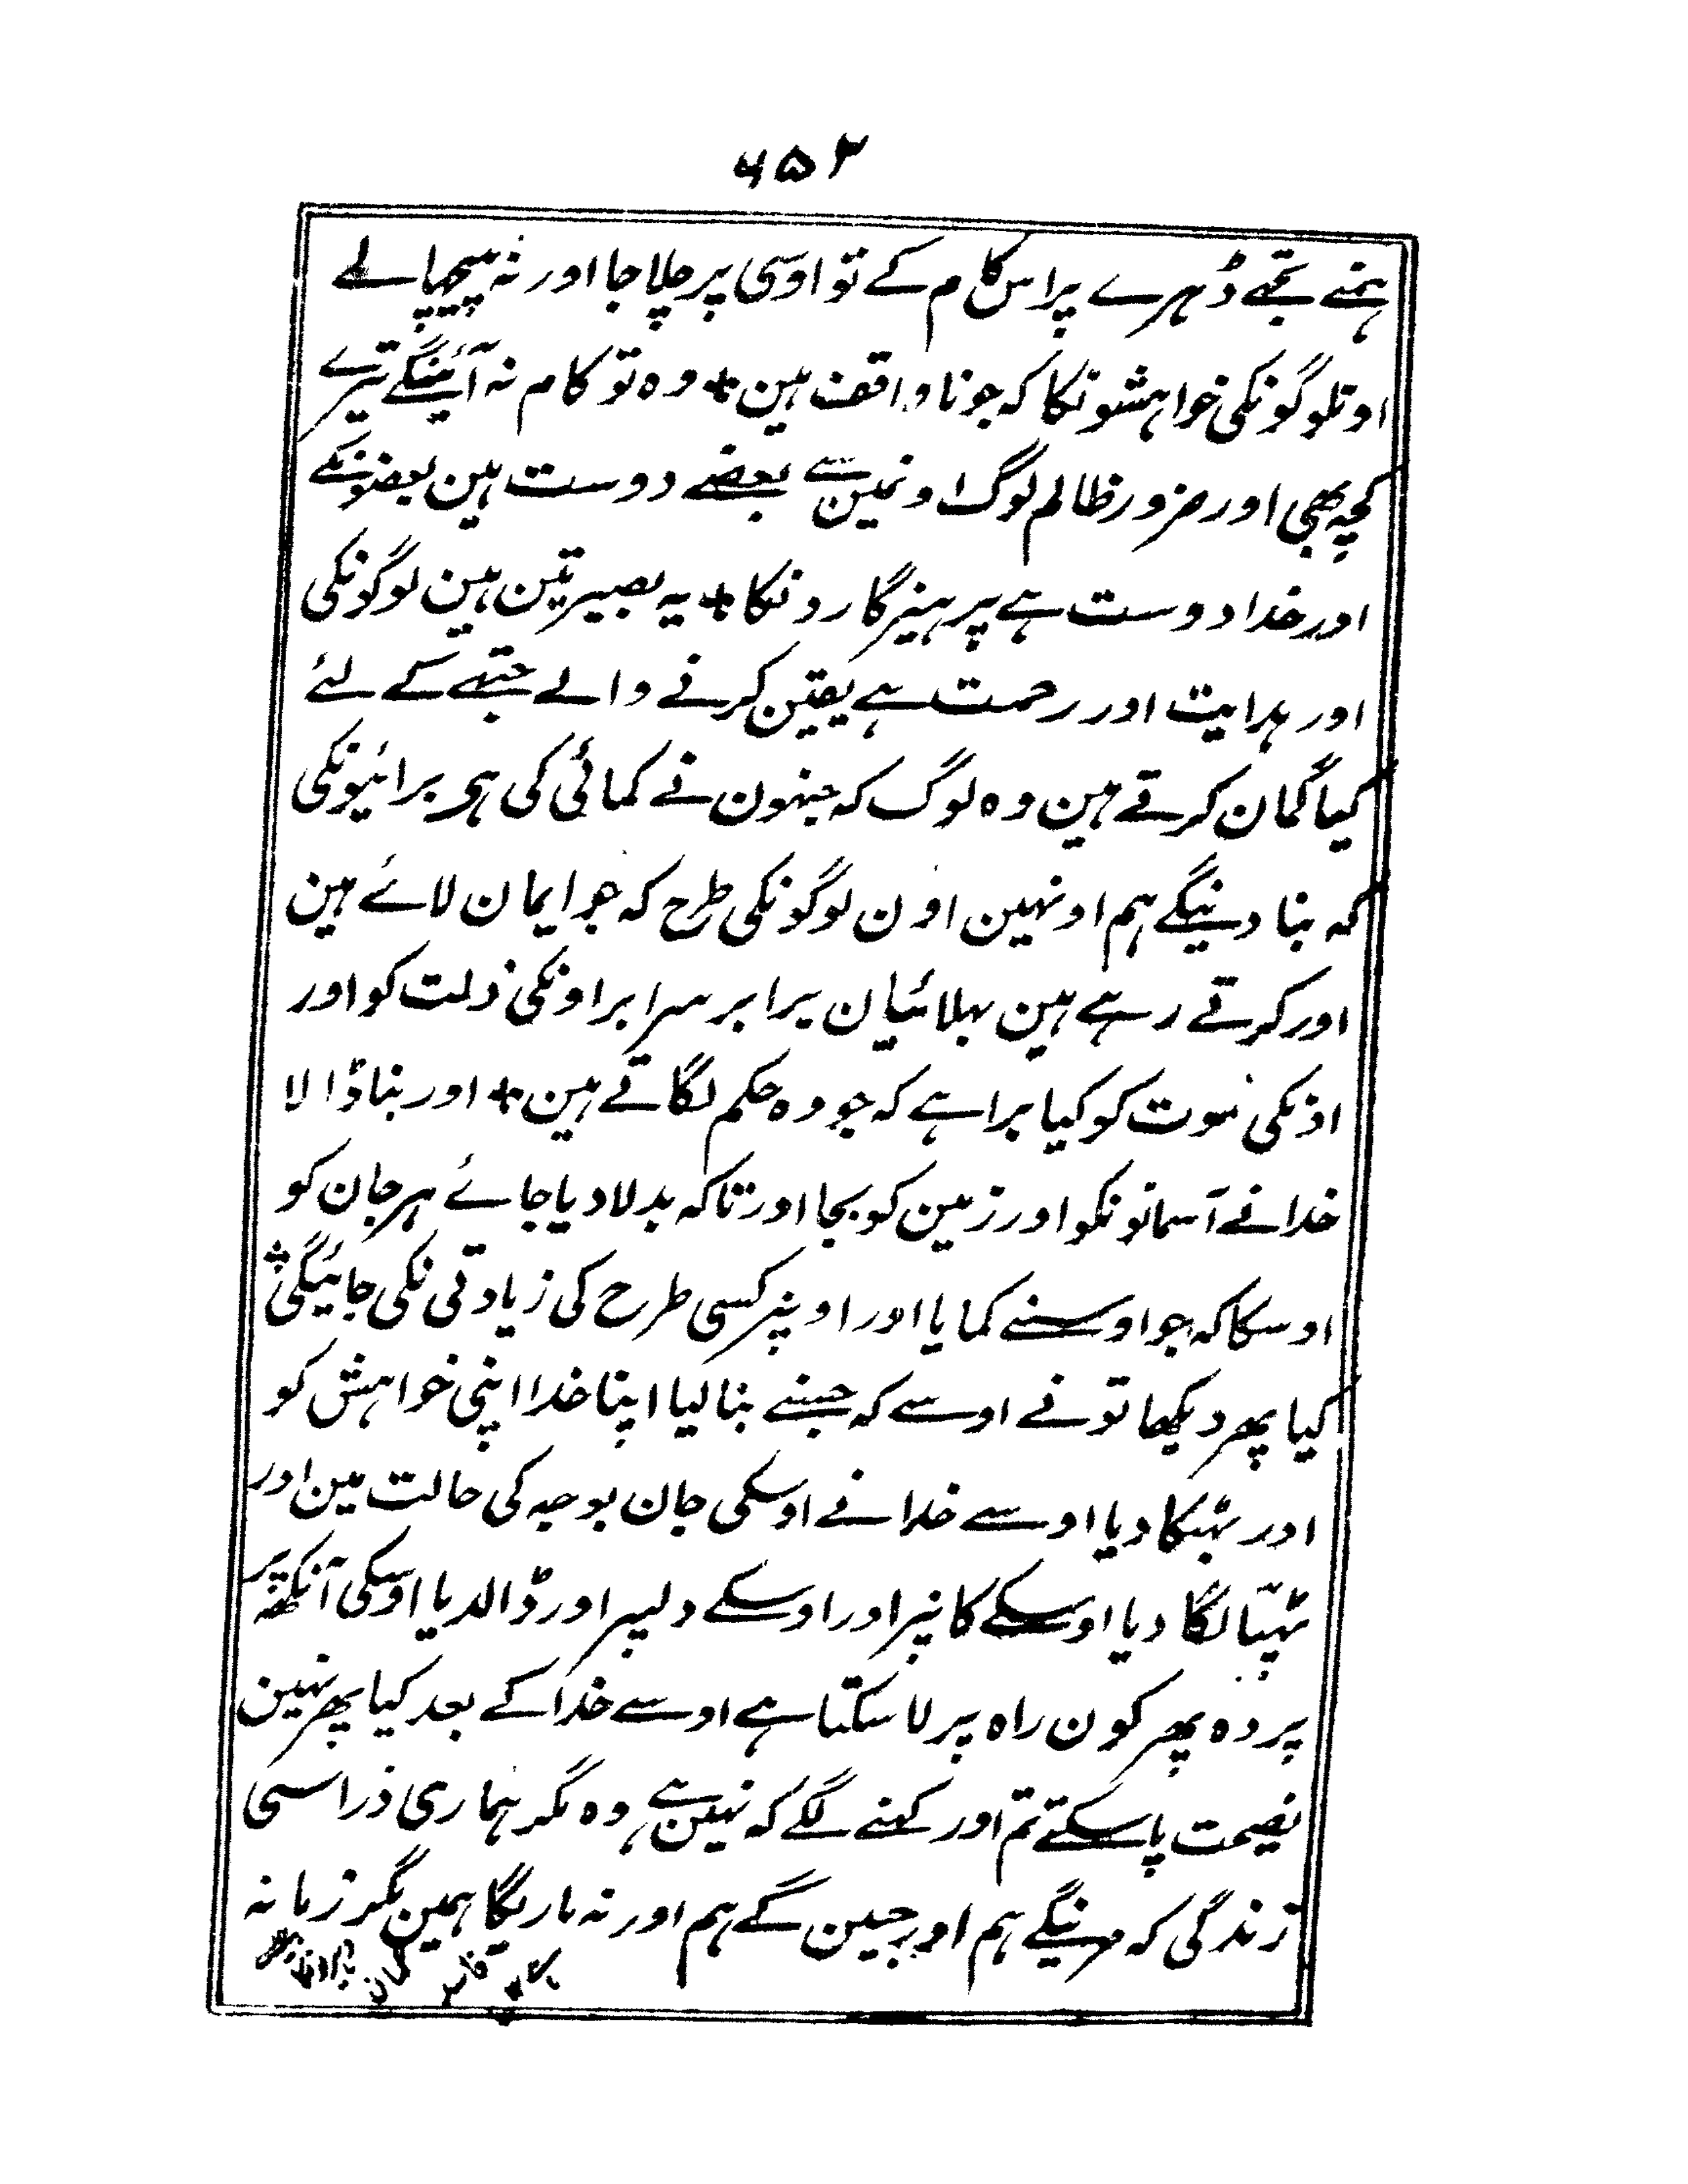 ۶۵۲
ہمنے تجھے ڈہرے پر اس کام کے تو اوسی پر چلا جا اور نہ پیچھا لے
اونلوگونکی خواہشونکا کہ جو ناواقف ہین + وہ تو کام نہ آئینگے تیرے
کچہ بھی اور ضرور ظالم لوگ اونمین سے بعضے دوست ہین بعضونکے
اور خدا دوست ہے پرہیزگارونکا + یہ بصیرتین ہین لوگونکی
اور ہدایت اور رحمت ہے یقین کرنے والے جتھے کے لئے
کیا گمان کرتے ہین وہ لوگ کہ جنہون نے کمائی کی ہی برائیونکی
کہ بنا دینگے ہم اونہین اون لوگونکی طرح کہ جو ایمان لائے ہین
اور کرتے رہے ہین بہلائیان برابر سرابر اونکی ذلت کو اور
اونکی موت کو کیا برا ہے کہ جو وہ حکم لگاتے ہین + اور بنا ڈالا
خدا نے آسمانونکو اور زمین کو بجا اور تاکہ بدلا دیا جائے ہر جان کو
اوسکا کہ جو اوسنے کمایا اور اونپر کسی طرح کی زیادتی نکی جائیگی +
کیا پھر دیکھا تونے اوسے کہ جسنے بنا لیا اپنا خدا اپنی خواہش کو
اور بہٹکا دیا اوسے خدا نے اوسکی جان بوجہ کی حالت مین اور
ٹہپّا لگا دیا اوسکے کانپر اور اوسکے دلپر اور ڈالدیا اوسکی آنکھہ پر
پردہ پھر کون راہ پر لا سکتا ہے اوسے خدا کے بعد کیا پھر نہین
نصیحت پا سکتے تم اور کہنے لگے کہ نہین ہے وہ مگر ہماری ذرا سی
زندگی کہ مرینگے ہم اور جیین گے ہم اور نہ ماریگا ہمین مگر زمانہ